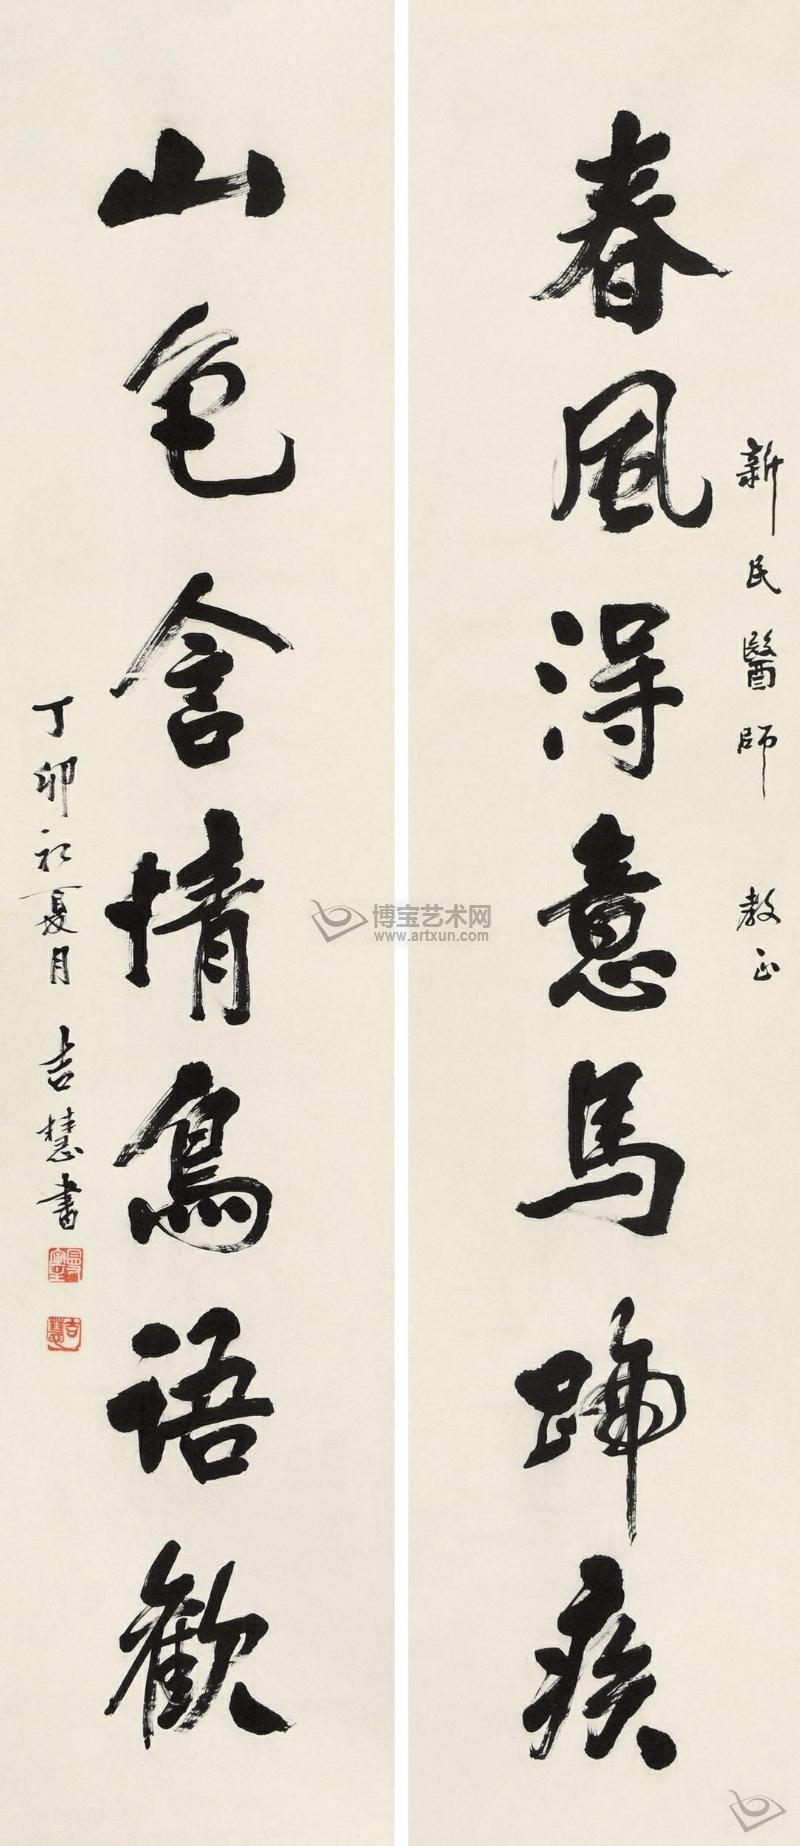 新民醫師 教正
春風得意馬蹄疾
山色含情鳥語歡
丁卯初夏月 吉慧書
吉慧
博宝艺术网
www.artxun.com